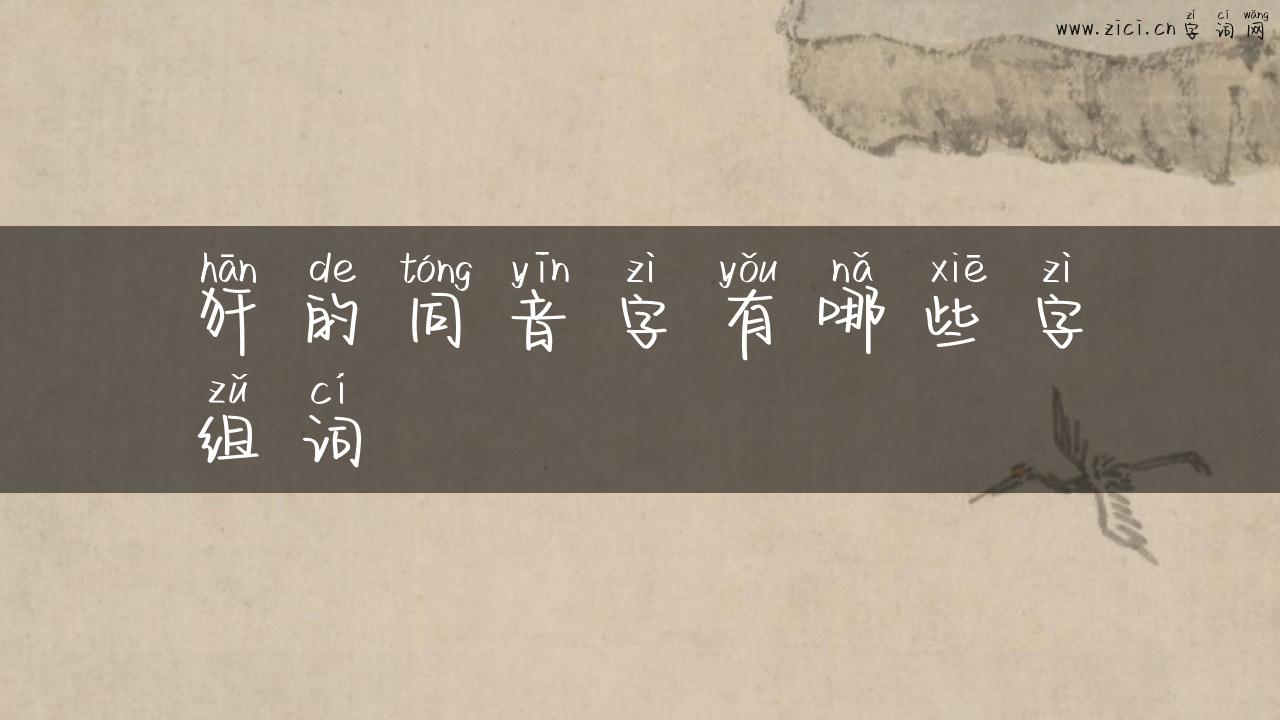 zì cí wǎng
www.zici.cn 字词网
hān de tóng yīn zì yǒu nǎ xiē zì
犴的同音字有哪些字
zǔ cí
组词